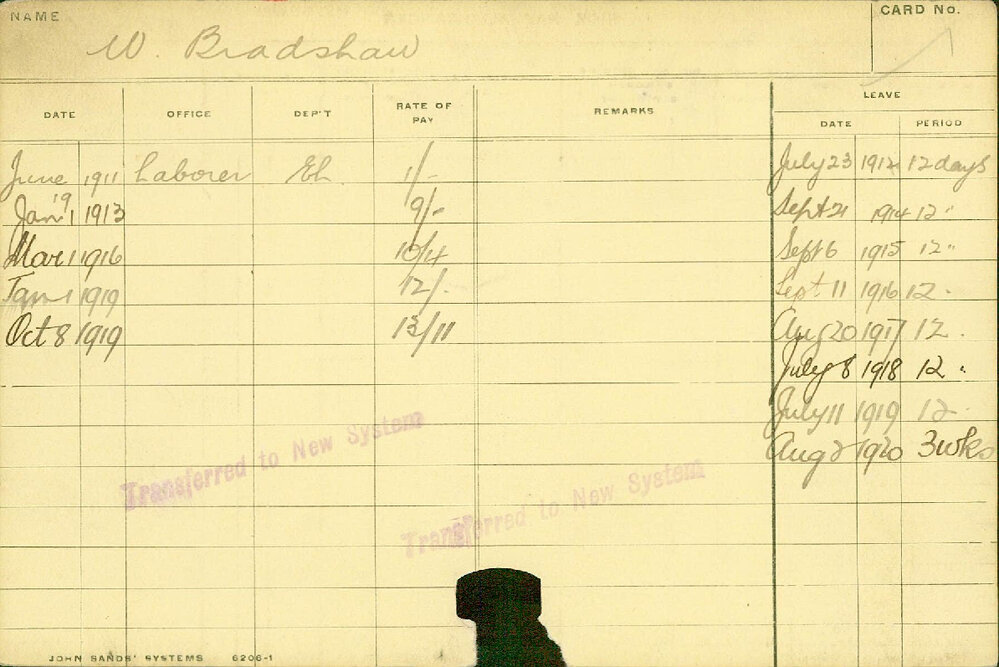 NAME
CARD No.
W. Bradshaw
DATE OFFICE DEP'T RATE OF PAY REMARKS LEAVE
DATE PERIOD
June 1911 Laborer 1/- July 23 1912 12 days
Jan 19 1 1913 9/- Sept 21 1914 12 "
Mar 1 1916 10/4 Sept 6 1915 12 "
Jan 1 1919 12/- Sept 11 1916 12 "
Oct 8 1919 13/11 Aug 20 1917 12 "
July 8 1918 12 "
July 11 1919 12 "
Aug 2 1920 3 wks
Transferred to New System
Transferred to New System
JOHN SANDS' SYSTEMS 6206-1